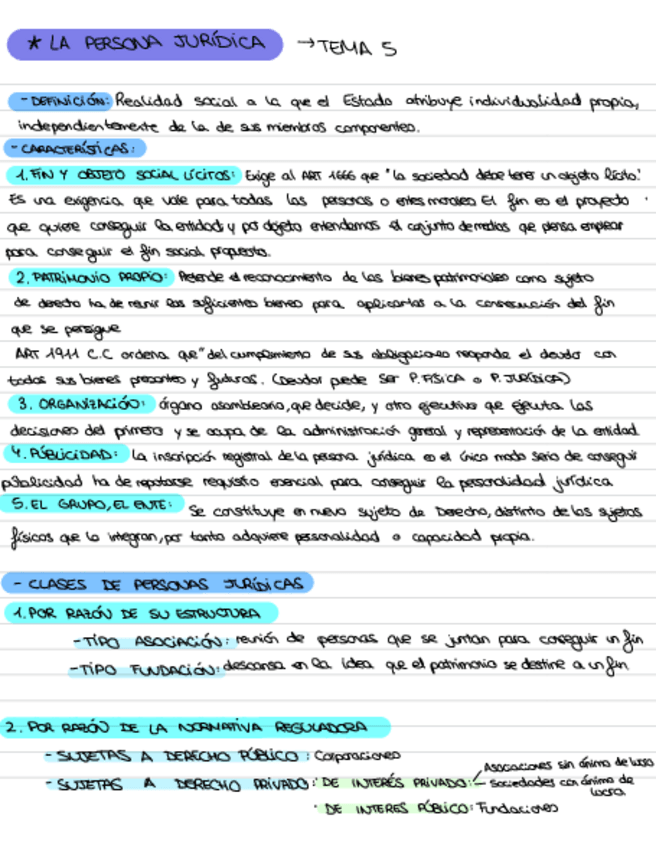 * LA PERSONA JURÍDICA → TEMA 5
- DEFINICIÓN: Realidad social a la que el Estado atribuye individualidad propia,
independientemente de la de sus miembros componentes.
- CARACTERÍSTICAS:
1. FIN Y OBJETO SOCIAL LÍCITOS: Exige al ART 1666 que "la sociedad debe tener un objeto lícito."
Es una exigencia que vale para todas las personas o entes morales El fin es el proyecto
que quiere conseguir la entidad y por objeto entendemos el conjunto de medios que piensa emplear
para conseguir el fin social propuesto.
2. PATRIMONIO PROPIO: Pretende el reconocimiento de los bienes patrimoniales como sujeto
de derecho ha de reunir los suficientes bienes para aplicarlos a la consecución del fin
que se persigue
ART 1911 C.C ordena que "del cumplimiento de sus obligaciones responde el deudor con
todos sus bienes presentes y futuros. (Deudor puede ser P. FÍSICA o P. JURÍDICA)
3. ORGANIZACIÓN: órgano asambleario, que decide, y otro ejecutivo que ejecuta las
decisiones del primero y se ocupa de la administración general y representación de la entidad
4. PÚBLICIDAD: La inscripción registral de la persona jurídica es el único modo serio de conseguir
publicidad ha de reputarse requisito esencial para conseguir la personalidad jurídica
5. EL GRUPO, EL ENTE: Se constituye en nuevo sujeto de Derecho, distinto de los sujetos
físicos que lo integran, por tanto adquiere personalidad o capacidad propia.
- CLASES DE PERSONAS JURÍDICAS
1. POR RAZÓN DE SU ESTRUCTURA
- TIPO ASOCIACIÓN: reunión de personas que se juntan para conseguir un fin
- TIPO FUNDACIÓN: descansa en la idea que el patrimonio se destine a un fin
2. POR RAZÓN DE LA NORMATIVA REGULADORA
- SUJETAS A DERECHO PÚBLICO: Corporaciones
- SUJETAS A DERECHO PRIVADO: · DE INTERÉS PRIVADO: Asociaciones sin ánimo de lucro
Sociedades con ánimo de
lucro
· DE INTERES PÚBLICO: Fundaciones